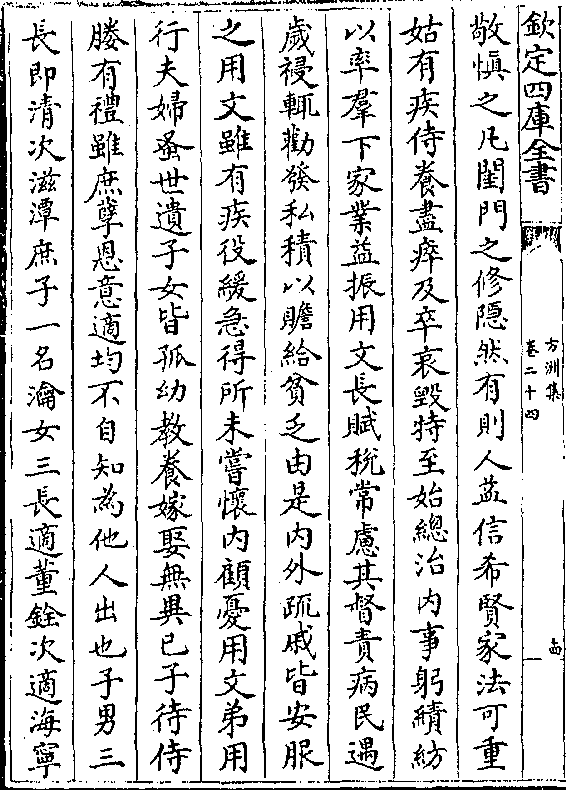 欽定四庫全書
方洲集
卷二十四
敬慎之凡閨門之修隱然有則人益信希賢家法可重
姑有疾侍養盡瘁及卒哀毀特至始總治内事躬績紡
以率羣下家業益振用文長賦稅常慮其督責病民遇
歲祲輒勸發私積以贍給貧乏由是内外疏戚皆安服
之用文雖有疾役緩急得所未嘗懷内顧憂用文弟用
行夫婦蚤世遺子女皆孤幼教養嫁娶無異已子待侍
媵有禮雖庶孽恩意適均不自知為他人出也子男三
長即清次滋潭庶子一名瀹女三長適董銓次適海寧